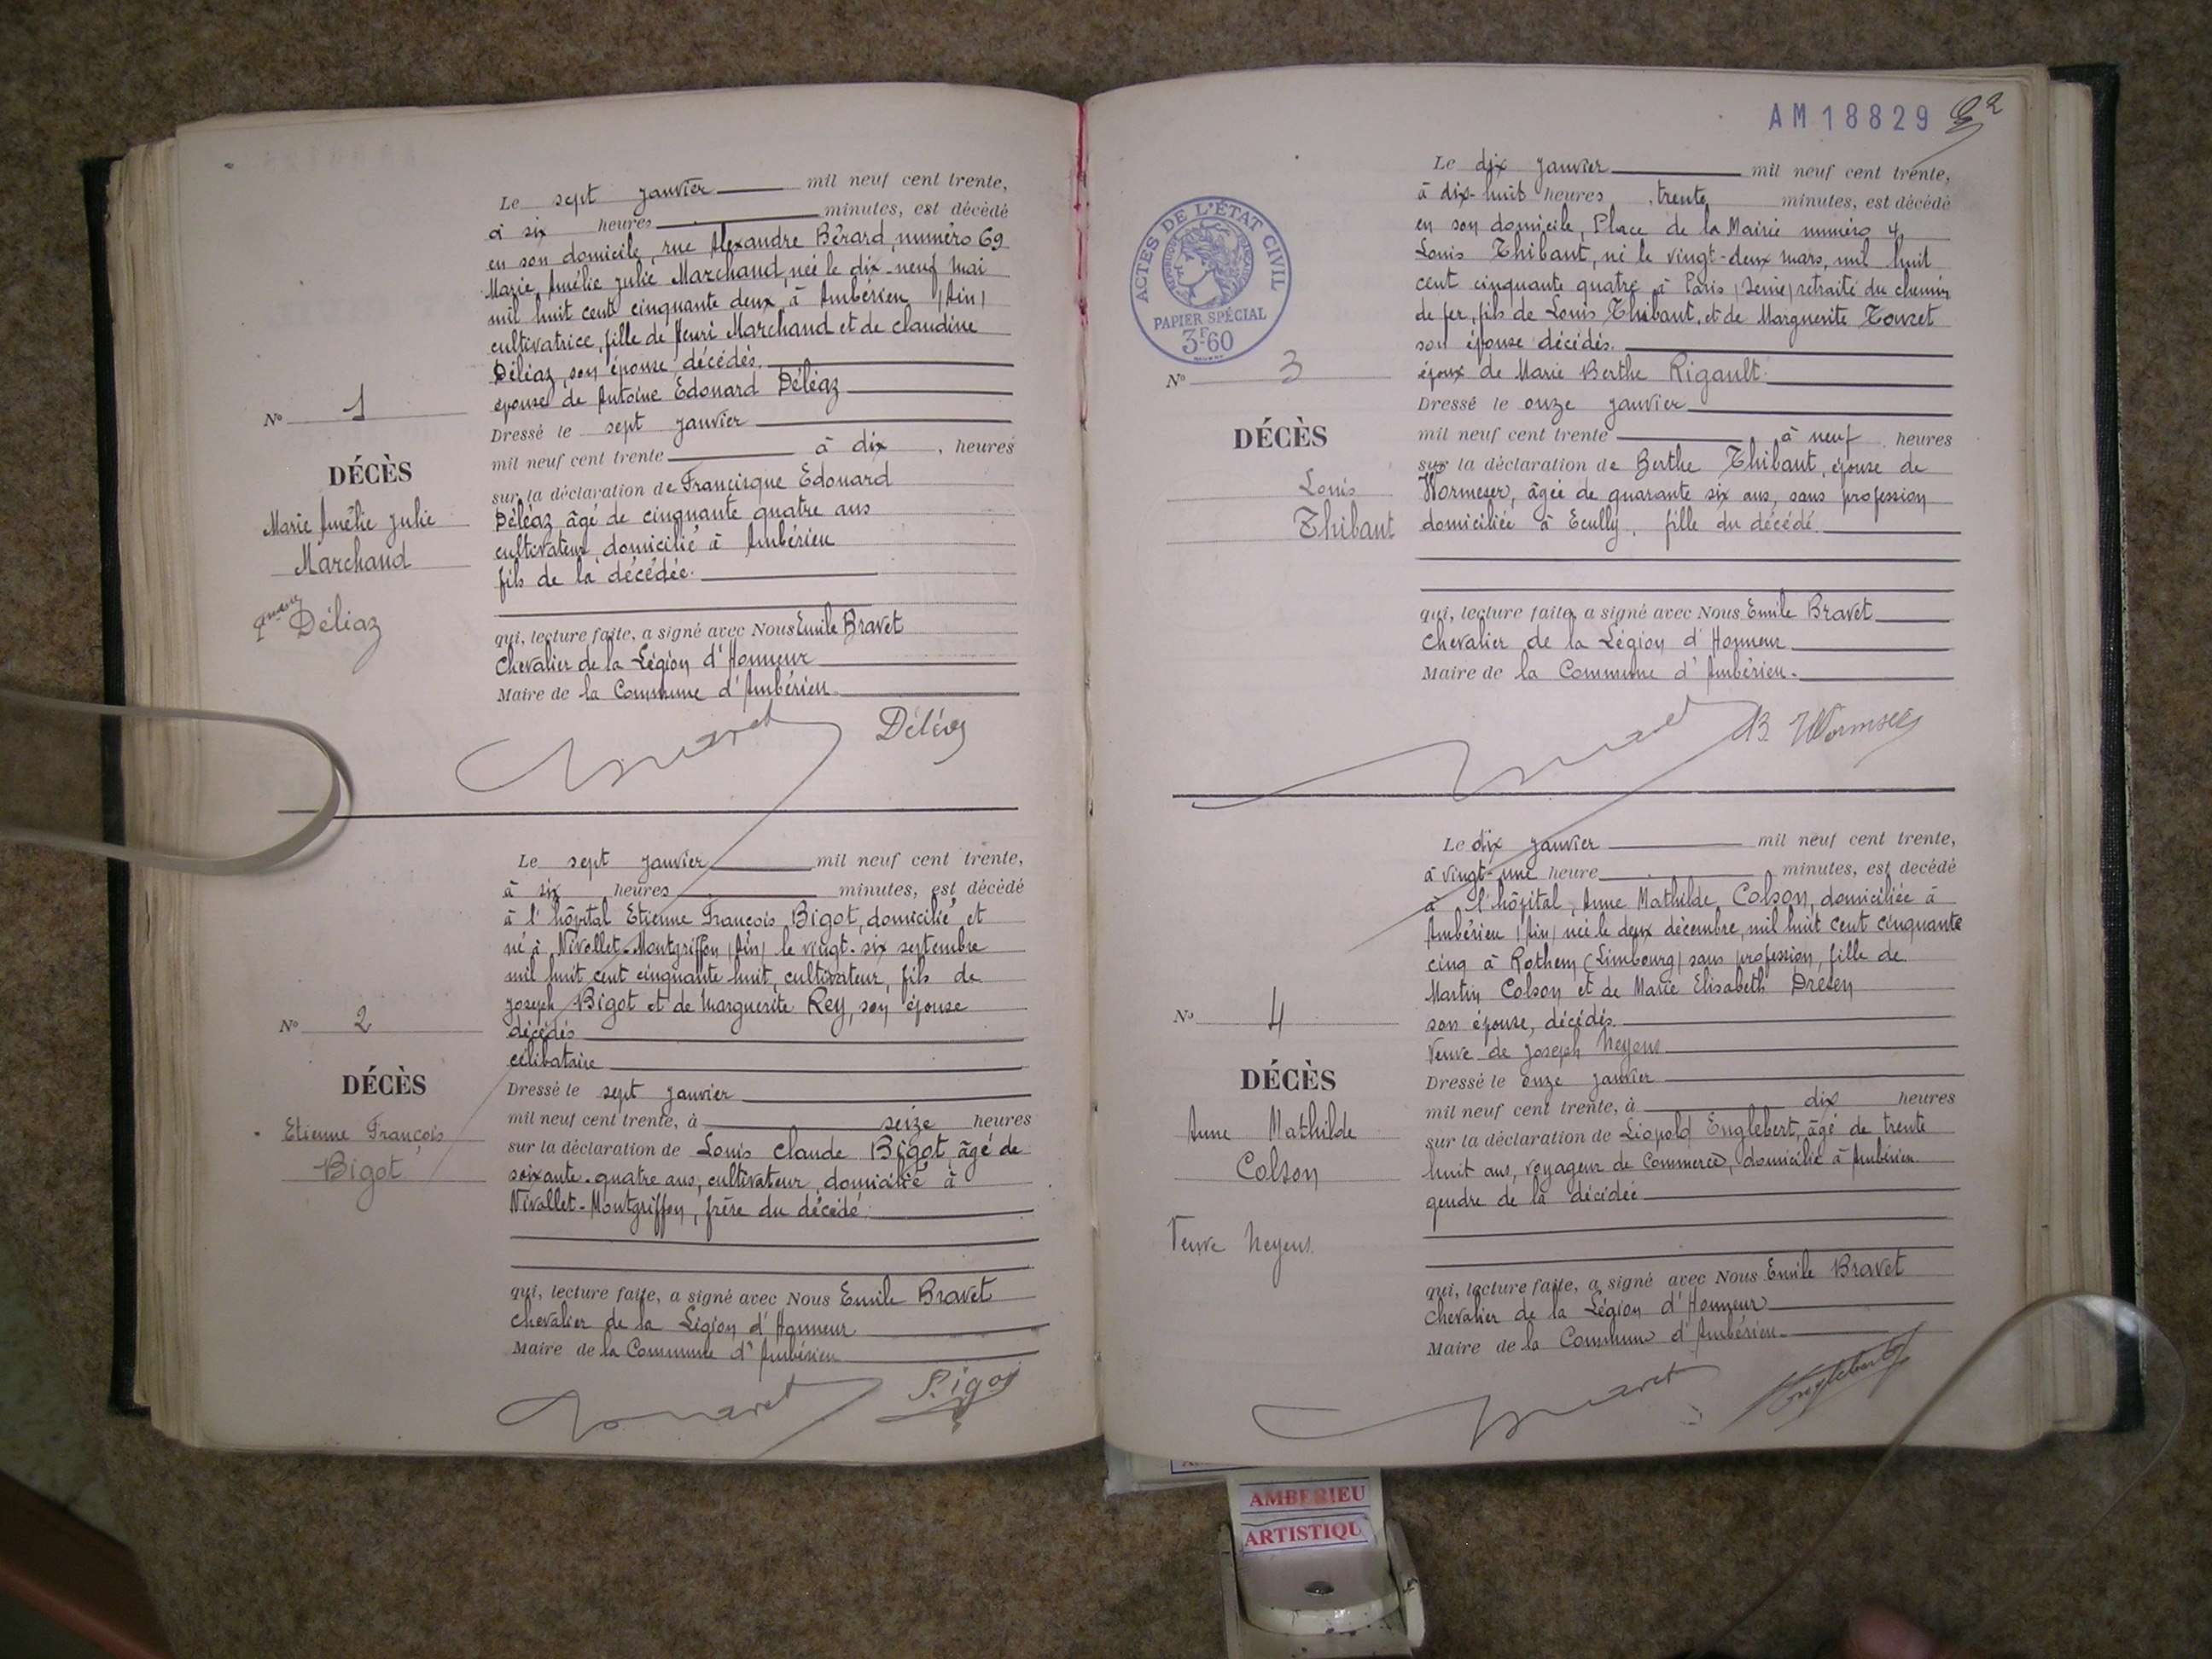 Le sept janvier mil neuf cent trente,
à six heures minutes, est décédé
en son domicile, rue Alexandre Bérard, numéro 69
Marie, Amélie Julie Marchand, née le dix-neuf mai
mil huit cent cinquante deux, à Ambérieu (Ain)
cultivatrice, fille de Henri Marchand et de Claudine
Déléaz, son épouse, décédés.
épouse de Antoine Edouard Déléaz
Dressé le sept janvier
mil neuf cent trente à dix heures
sur la déclaration de Francisque Edouard
Déléaz, âgé de cinquante quatre ans
cultivateur, domicilié à Ambérieu
fils de la décédée.
qui, lecture faite, a signé avec Nous Emile Bravet
Chevalier de la Légion d'Honneur
Maire de la Commune d'Ambérieu.
Bravet Déléaz
N° 1
DÉCÈS
Marie Amélie Julie
Marchand
Déléaz
Le sept janvier mil neuf cent trente,
à six heures minutes, est décédé
à l'hôpital Etienne François Bigot, domicilié, et
né à Nivollet-Montgriffon (Ain) le vingt-six septembre
mil huit cent cinquante huit, cultivateur, fils de
Joseph Bigot et de Marguerite Rey, son épouse
décédés
célibataire
Dressé le sept janvier
mil neuf cent trente, à seize heures
sur la déclaration de Louis Claude Bigot, âgé de
soixante-quatre ans, cultivateur, domicilié à
Nivollet-Montgriffon, frère du décédé.
qui, lecture faite, a signé avec Nous Emile Bravet
Chevalier de la Légion d'Honneur
Maire de la Commune d'Ambérieu
Bravet Bigot
N° 2
DÉCÈS
Etienne François
Bigot
AM18829
ACTES DE L'ÉTAT CIVIL
RÉPUBLIQUE FRANÇAISE
PAPIER SPÉCIAL
3F60
Le dix janvier mil neuf cent trente,
à dix-huit heures trente minutes, est décédé
en son domicile, Place de la Mairie numéro 4
Louis Thibaut, né le vingt-deux mars, mil huit
cent cinquante quatre à Paris (Seine) retraité du chemin
de fer, fils de Louis Thibaut, et de Marguerite Touzet
son épouse décédés.
époux de Marie Berthe Rigault.
Dressé le onze janvier
mil neuf cent trente à neuf heures
sur la déclaration de Berthe Thibaut, épouse de
Wormeser, âgée de quarante six ans, sans profession
domiciliée à Ecully, fille du décédé.
qui, lecture faite, a signé avec Nous Emile Bravet
Chevalier de la Légion d'Honneur
Maire de la Commune d'Ambérieu.
Bravet B. Wormser
N° 3
DÉCÈS
Louis
Thibaut
Le dix janvier mil neuf cent trente,
à vingt-une heure minutes, est décédé
à l'hôpital, Anne Mathilde Colson, domiciliée à
Ambérieu (Ain) née le deux décembre, mil huit cent cinquante
cinq à Rothem (Limbourg) sans profession, fille de
Martin Colson et de Marie Elisabeth Dresen
son épouse, décédés.
Veuve de Joseph Neyens
Dressé le onze janvier
mil neuf cent trente, à dix heures
sur la déclaration de Léopold Englebert, âgé de trente
huit ans, voyageur de Commerce, domicilié à Ambérieu
gendre de la décédée
qui, lecture faite, a signé avec Nous Emile Bravet
Chevalier de la Légion d'Honneur
Maire de la Commune d'Ambérieu
Bravet Englebert
N° 4
DÉCÈS
Anne Mathilde
Colson
Veuve Neyens
AMBERIEU
ARTISTIQU